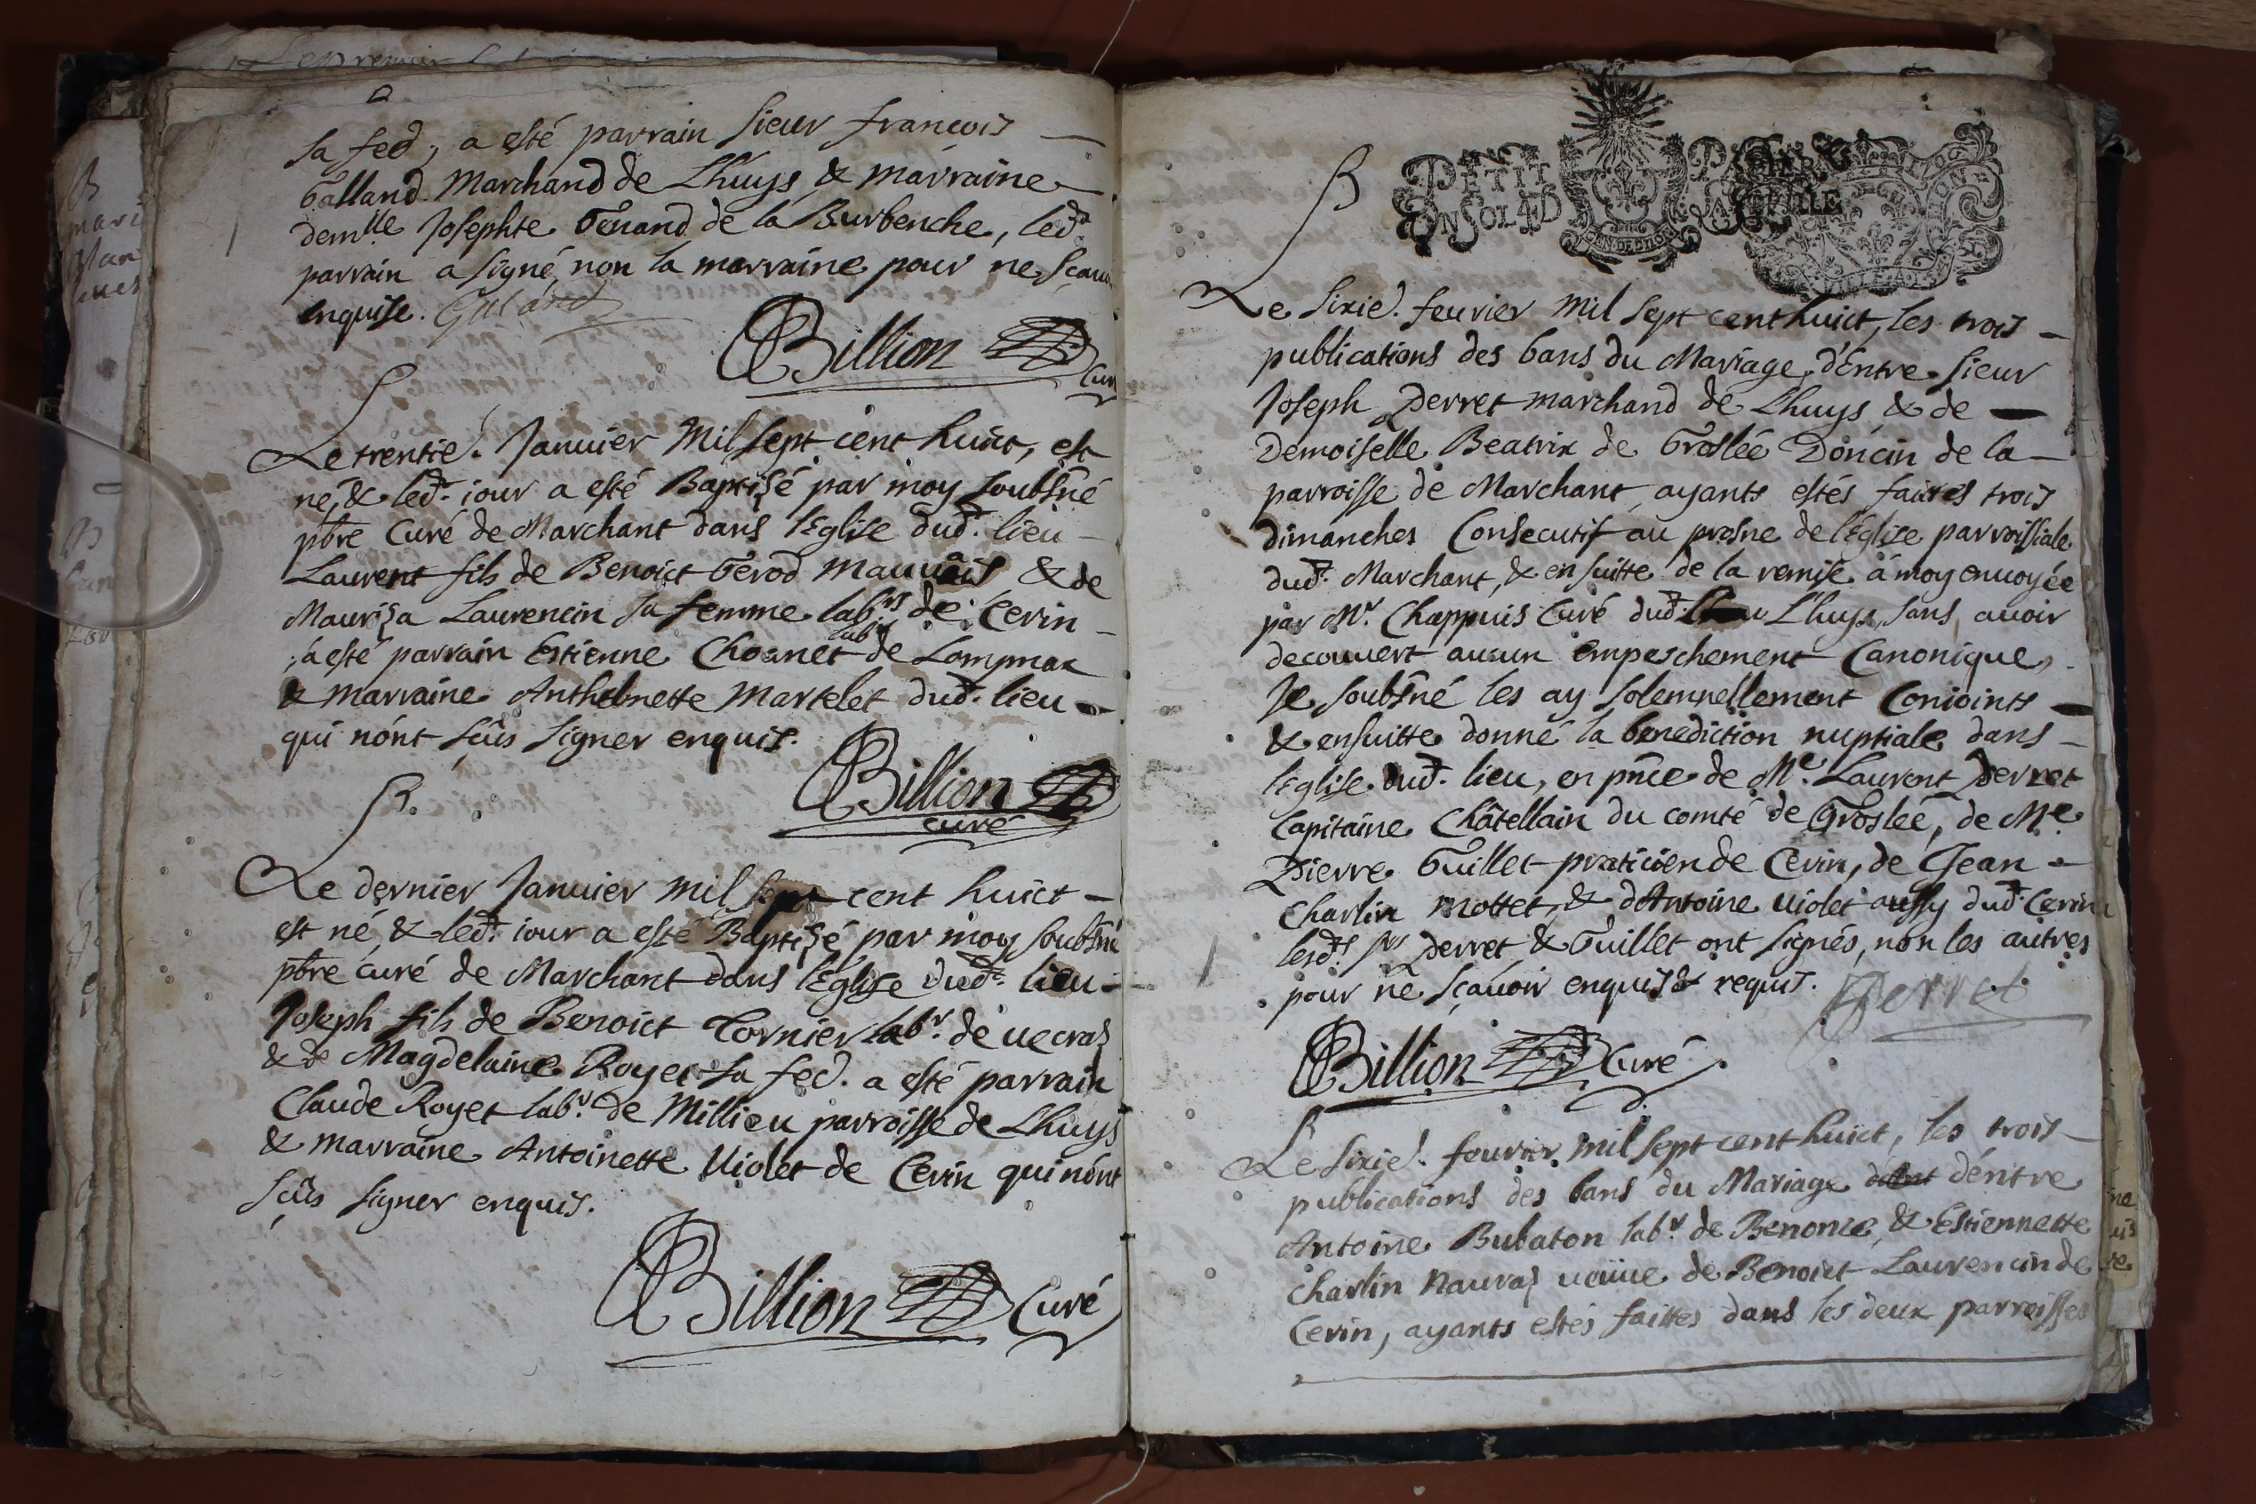 sa fed, a esté parrain sieur françois
Galland Marchand de Lhuys & marraine
demlle Josephte Genand de la Burbenche, led.
parrain a signé non la marraine pour ne sçau
enquise. Galand
Billion Cur
Le trentie. Januier Mil sept cent huict, est
né, & led. iour a esté Baptisé par moy soubsné
pbre Curé de Marchant dans l'Eglise dud. lieu
Laurent fils de Benoict Gerod mauuais & de
Mauriza Laurencin sa femme labrs de Cerin
, a esté parrain Estienne Chosnet labr de Lompnax
& marraine Anthelmette Martelet dud. lieu
qui nónt sçûs signer enquis.
Billion
curé
B.
Le dernier Januier mil sept cent huict
est né, & led. iour a esté Baptisé par moy soubsné
pbre curé de Marchant dans l'Eglise dud. lieu
Joseph fils de Benoict Cornier labr. de uecras
& de Magdelaine Royet sa fed. a esté parrain
Claude Royet labr. de Millieu parroisse de Lhuys
& marraine Antoinette Uiolet de Cerin qui nónt
sçûs signer enquis.
Billion Curé
PETIT PAPIER
UN SOL 4 D LA FEUILLE
B
Le sixie. feurier mil sept cent huict, les trois
publications des bans du Mariage d'Entre sieur
Joseph Derret marchand de Lhuys & de
Demoiselle Beatrix de Groslée Doncin de la
parroisse de Marchant, ayants estés faittes trois
dimanches Consecutif au prosne de l'Eglise parroissiale
dud. Marchant, & ensuitte de la remise à moy enuoyée
par Mr. Chappuis Curé dud. Lhuys, sans auoir
decouuert aucun empeschement Canonique,
Je soubsné les ay solemnellement Conioints
& ensuitte donné la benediction nuptiale dans
l'Eglise dud. lieu, en pnce de Me. Laurent Derret
Capitaine Châtellain du comté de Groslée, de Me
Pierre Guillet praticien de Cerin, de Jean
Charlin Mottet, & d'Antoine Uiolet aussy dud. Cerin
lesdts srs Derret & Guillet ont signés, non les autres
pour ne sçauoir enquis & requis. Derret
Billion Curé.
Le sixie. feurier mil sept cent huict, les trois
publications des bans du Mariage déntre
Antoine Bubaton labr. de Benonce, & Estiennette
Charlin Nauraz ueüue de Benoict Laurencin de
Cerin, ayants estés faittes dans les deux parroisses